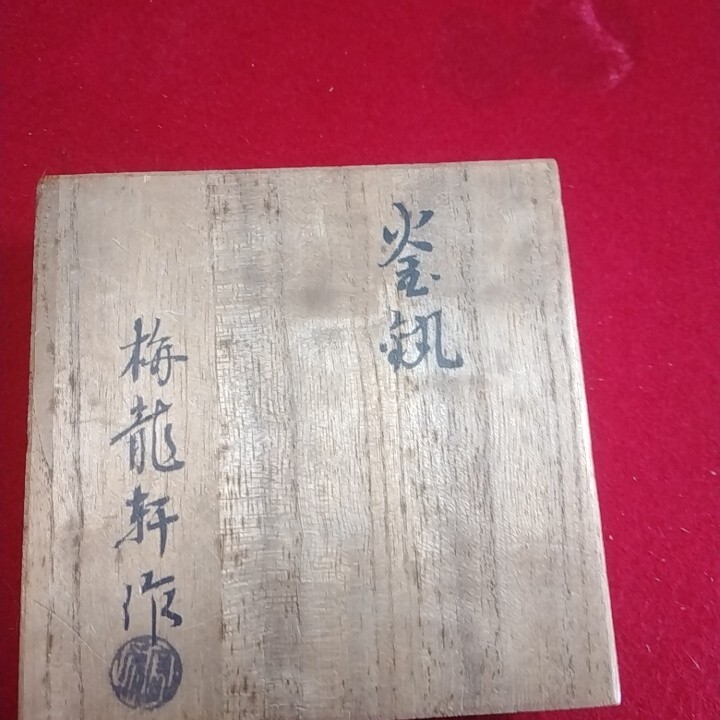 釜釻
梅龍軒作